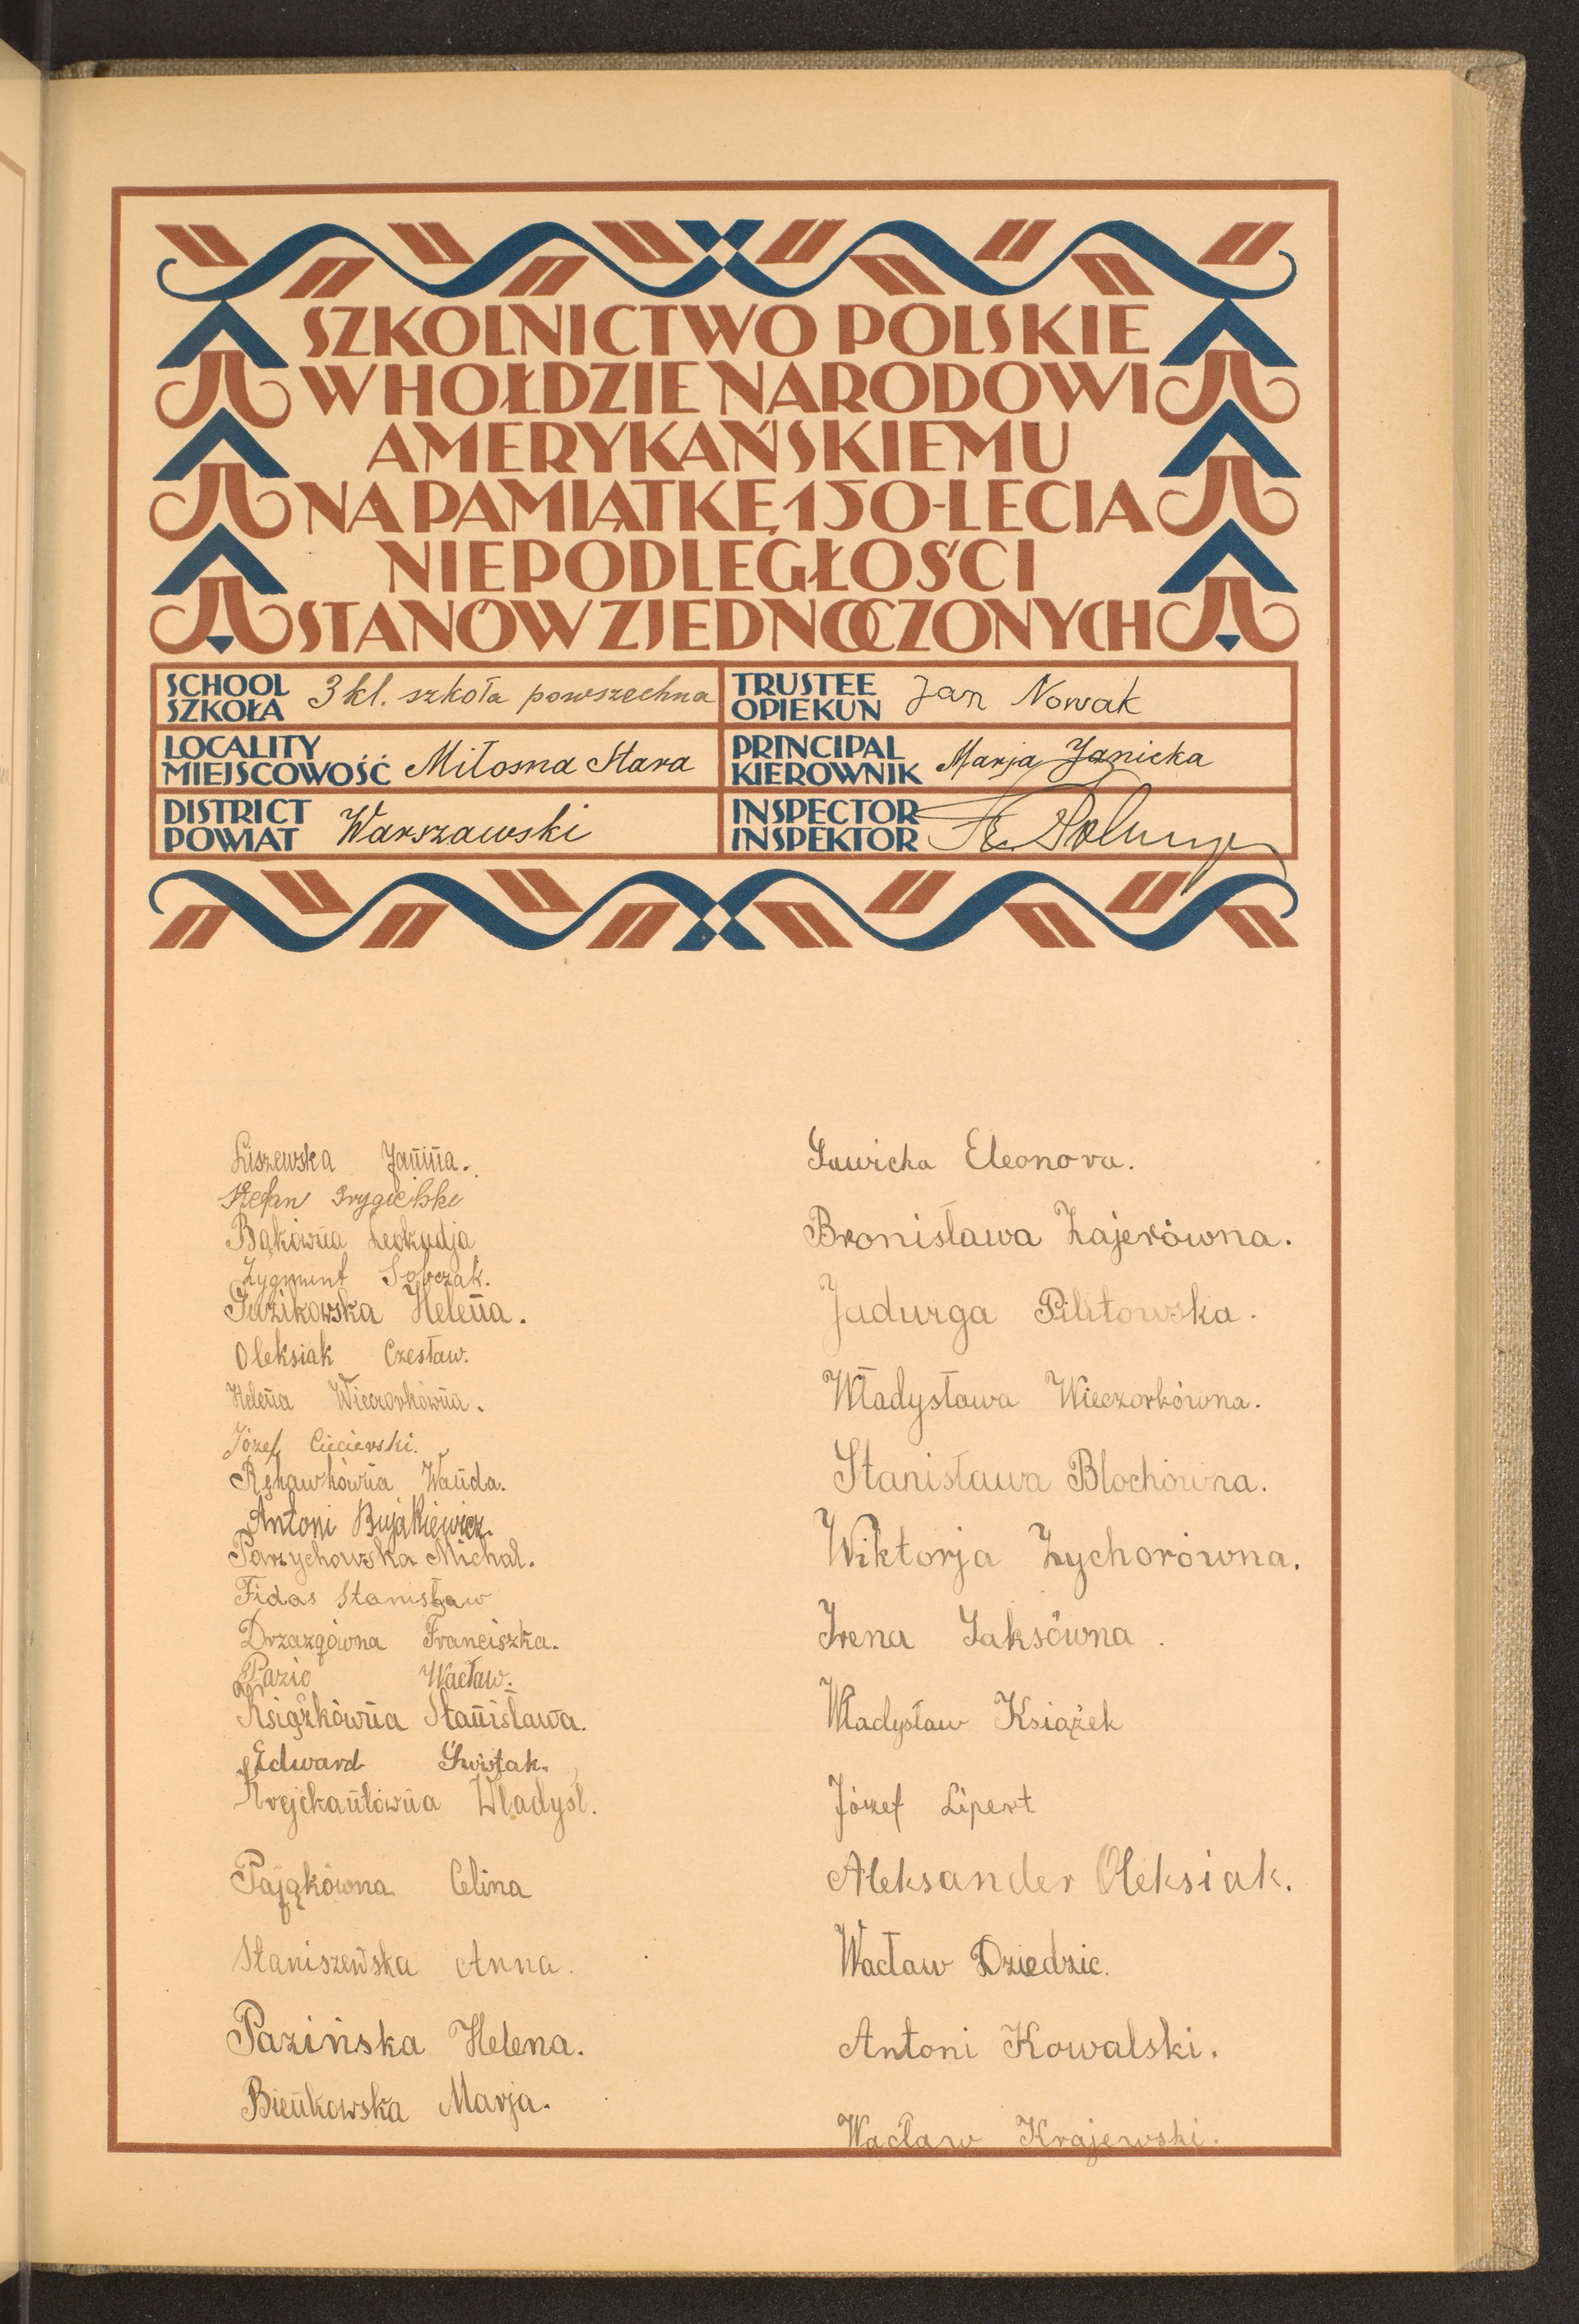 SZKOLNICTWO POLSKIE
W HOŁDZIE NARODOWI
AMERYKAŃSKIEMU
NA PAMIĄTKĘ 150-LECIA
NIEPODLEGŁOŚCI
STANÓW ZJEDNOCZONYCH
SCHOOL
SZKOŁA 3 kl. szkoła powszechna
TRUSTEE
OPIEKUN Jan Nowak
LOCALITY
MIEJSCOWOŚĆ Miłosna Stara
PRINCIPAL
KIEROWNIK Marja Janicka
DISTRICT
POWIAT Warszawski
INSPECTOR
INSPEKTOR
Liszewska Janina.
Stefan Grygielski
Bąkówna Leokadja
Zygmunt Sobczak.
Guzikowska Helena.
Oleksiak Czesław.
Helena Wieczorkówna.
Józef
Rękawkówna Wanda.
Antoni Bujakiewicz.
Parzychowska Michal.
Fidos Stanisław
Drzazgówna Franciszka.
Pazio Wacław.
Książkówna Stanisława.
Edward
Krejckantówna Władysł.
Pająkówna Celina
Staniszewska Anna.
Pazińska Helena.
Bieńkowska Marja.
Sawicka Eleonora.
Bronisława Zajerówna.
Jadwiga Pilitowska.
Władysława Wieczorkówna.
Stanisława Blochówna.
Wiktorja Zychorówna.
Irena Jaksówna.
Władysław Książek
Józef Lipert
Aleksander Oleksiak.
Wacław Dziedzic.
Antoni Kowalski.
Wacław Krajewski.